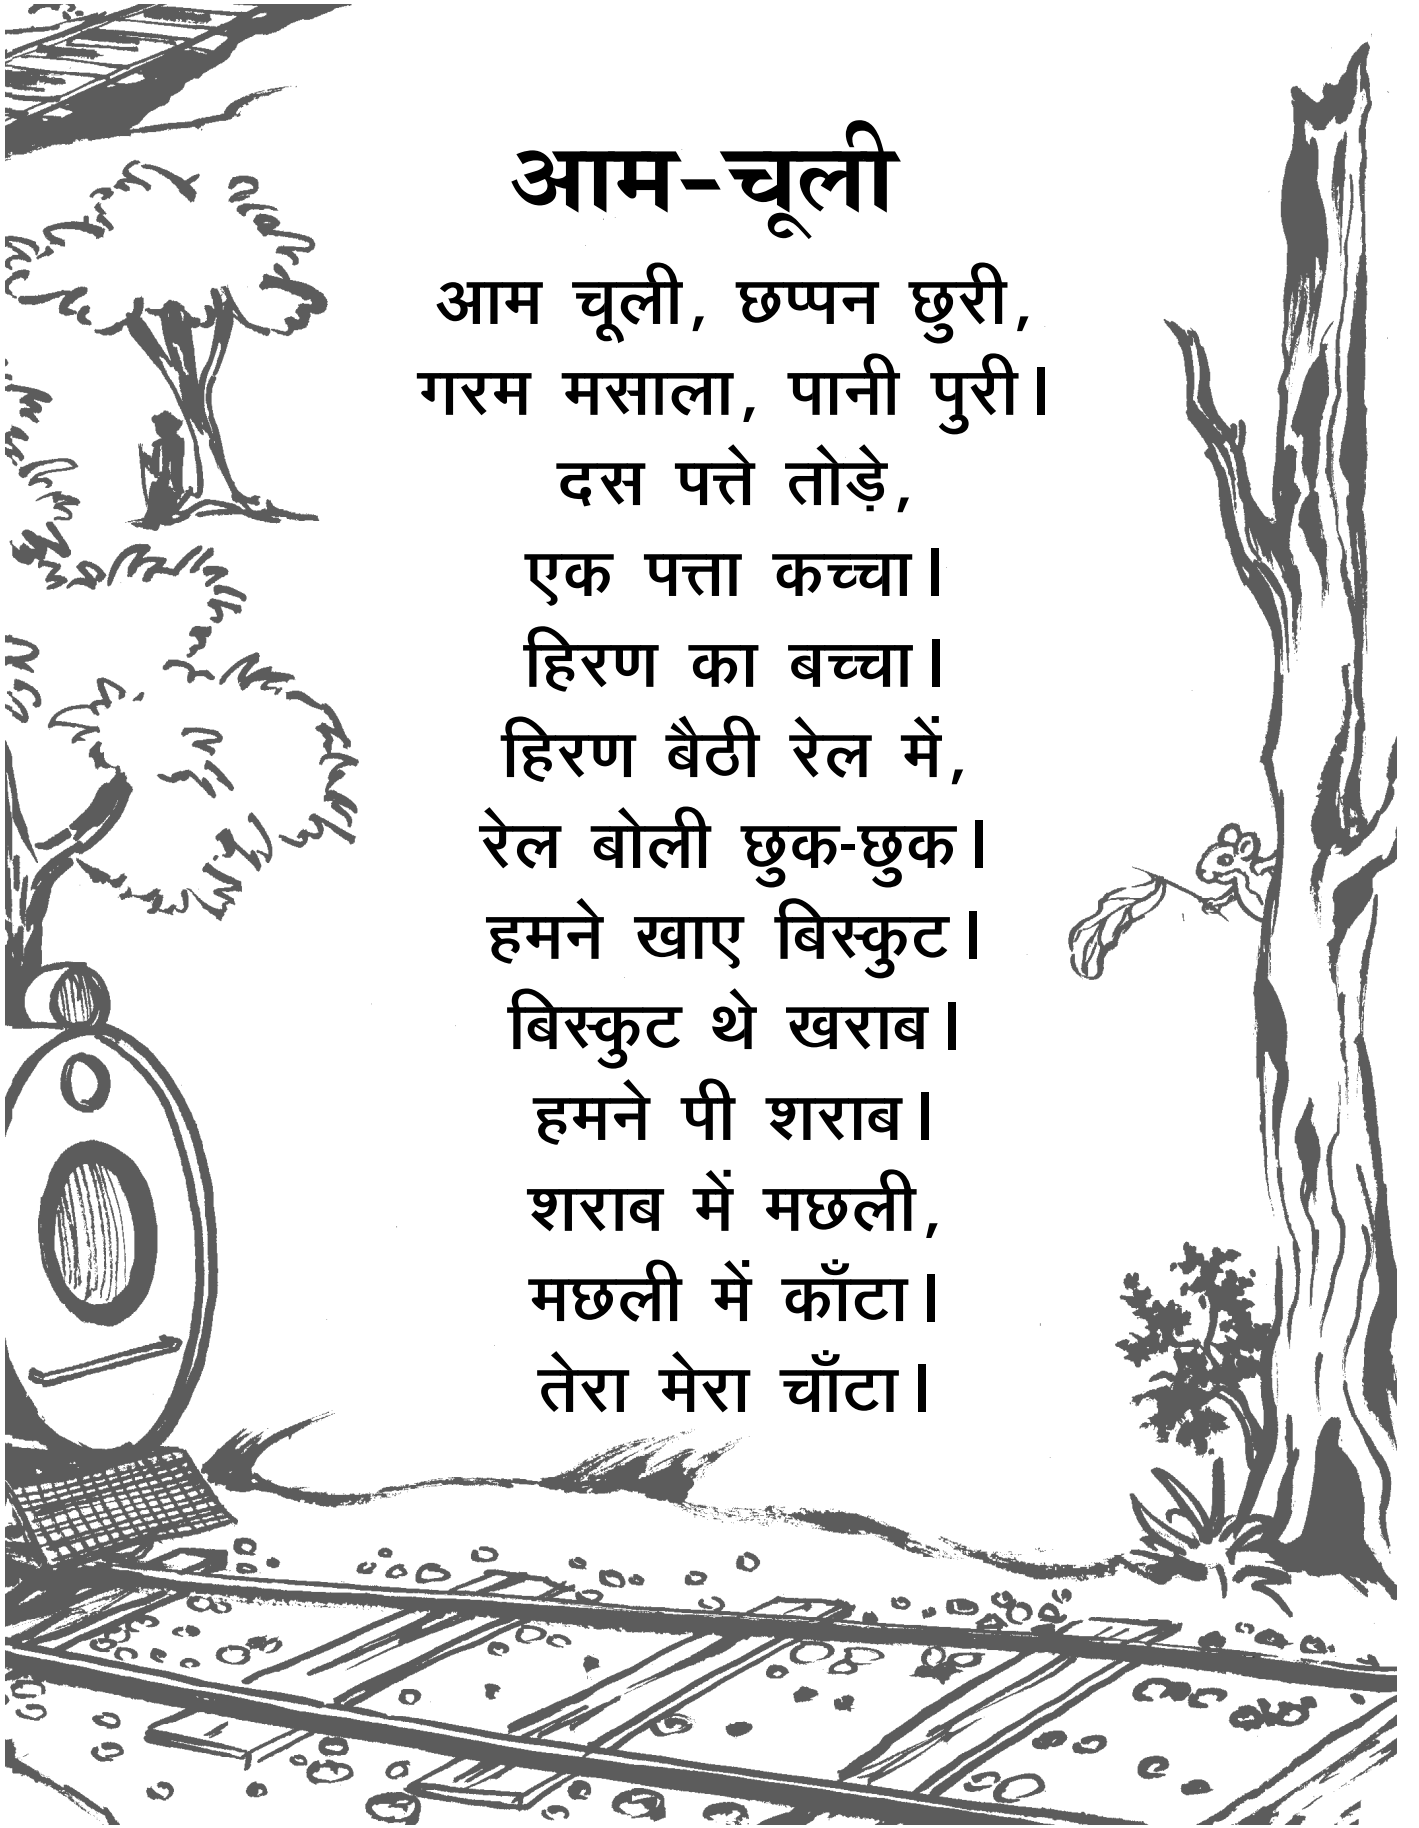 आम-चूली
आम चूली, छप्पन छुरी,
गरम मसाला, पानी पुरी।
दस पत्ते तोड़े,
एक पत्ता कच्चा।
हिरण का बच्चा।
हिरण बैठी रेल में,
रेल बोली छुक-छुक।
हमने खाए बिस्कुट।
बिस्कुट थे खराब।
हमने पी शराब।
शराब में मछली,
मछली में काँटा।
तेरा मेरा चाँटा।